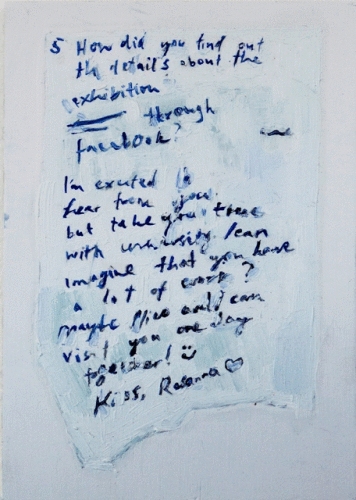 5 How did you find out
the details about the
exhibition
through
facebook?
I'm excited to
hear from you
but take your time
with university I can
imagine that you have
a lot of work?
maybe Alice and I can
visit you one day
together! ☺
Kiss, Rosanna ♡